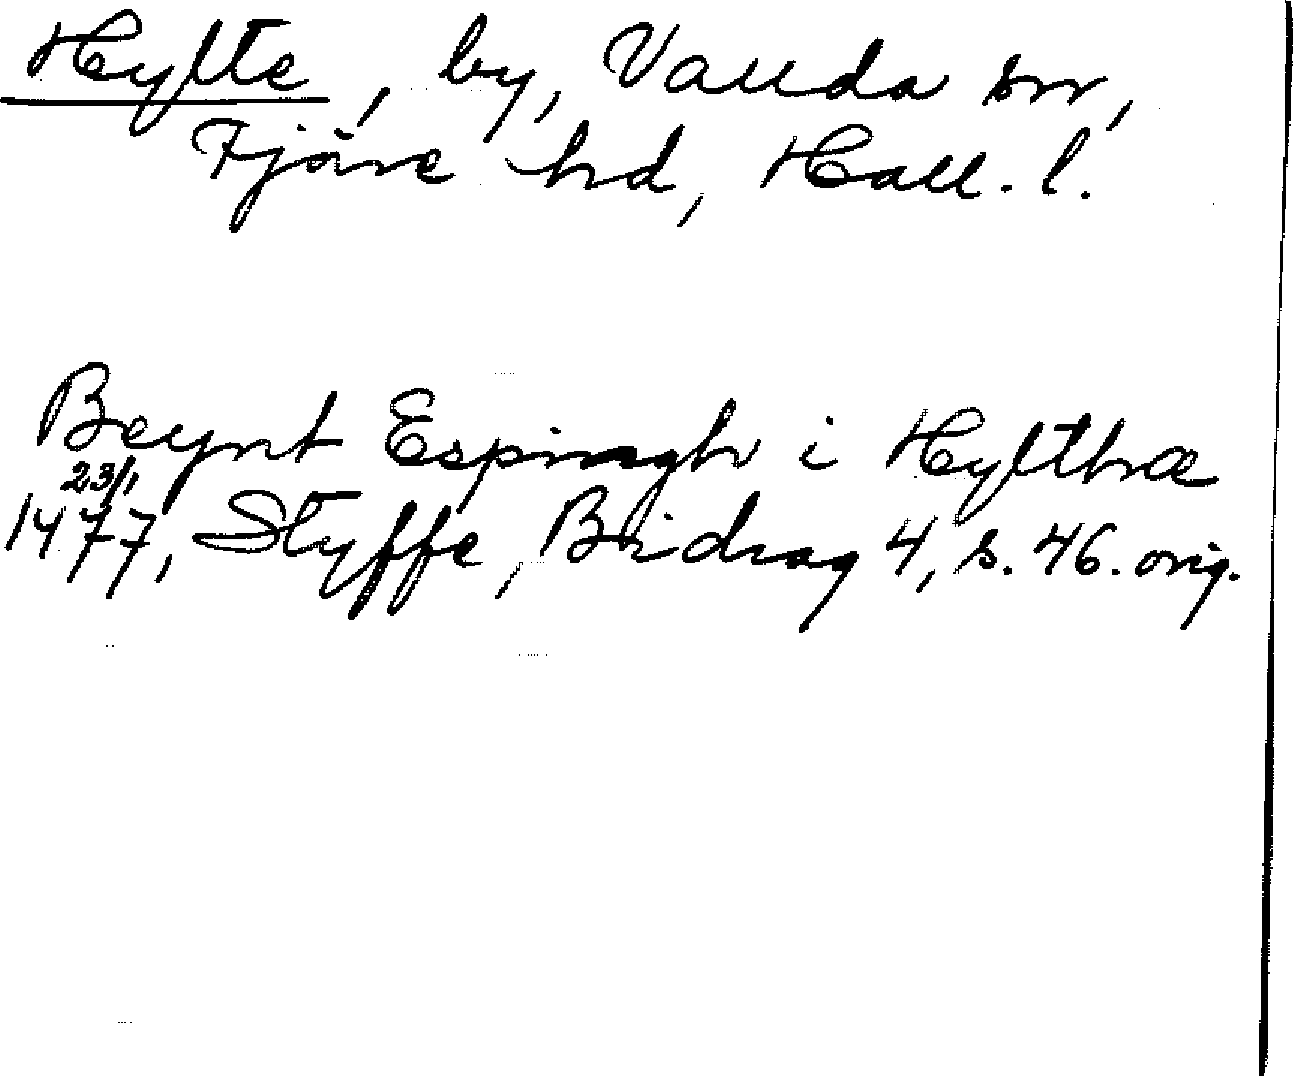 Hylte, by, Vallda sn,
Fjäre hd, Hall. l.
Beynt Espingh i Hylthæ
23/1
1477, Styffe, Bidrag 4, s. 46. orig.